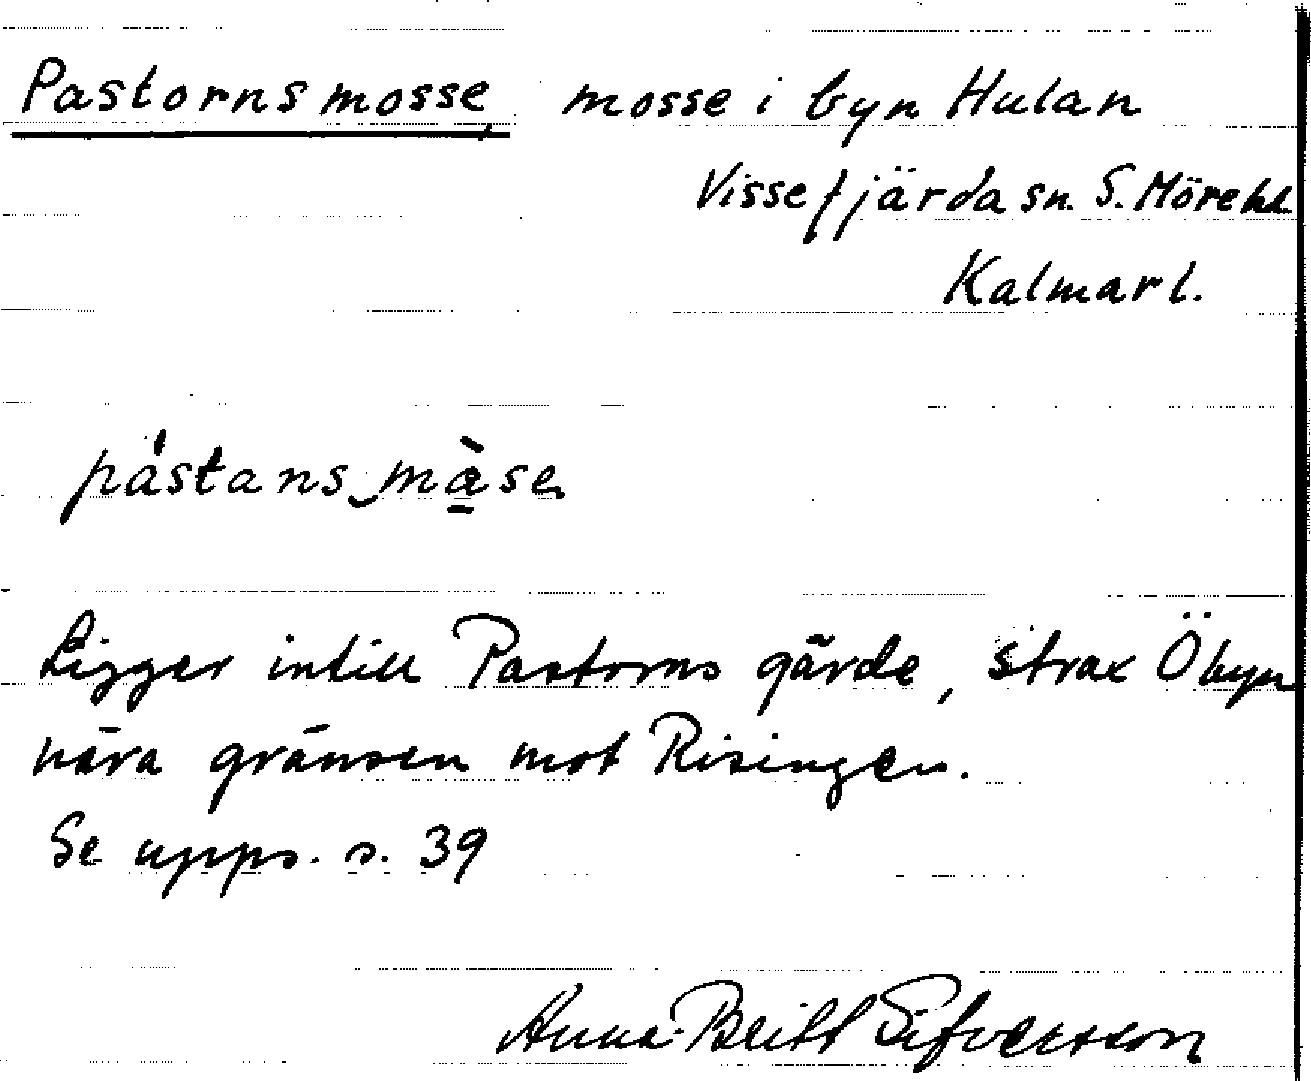 Pastorns mosse, mosse i byn Hulan
Vissefjärda sn. S. Möre hd.
Kalmar l.
pástans‿mà̱se
Ligger intill Pastorns gärde, strax Ö byn
nära gränsen mot Risingen.
Se upps. s. 39
Anna-Britt Sifversson